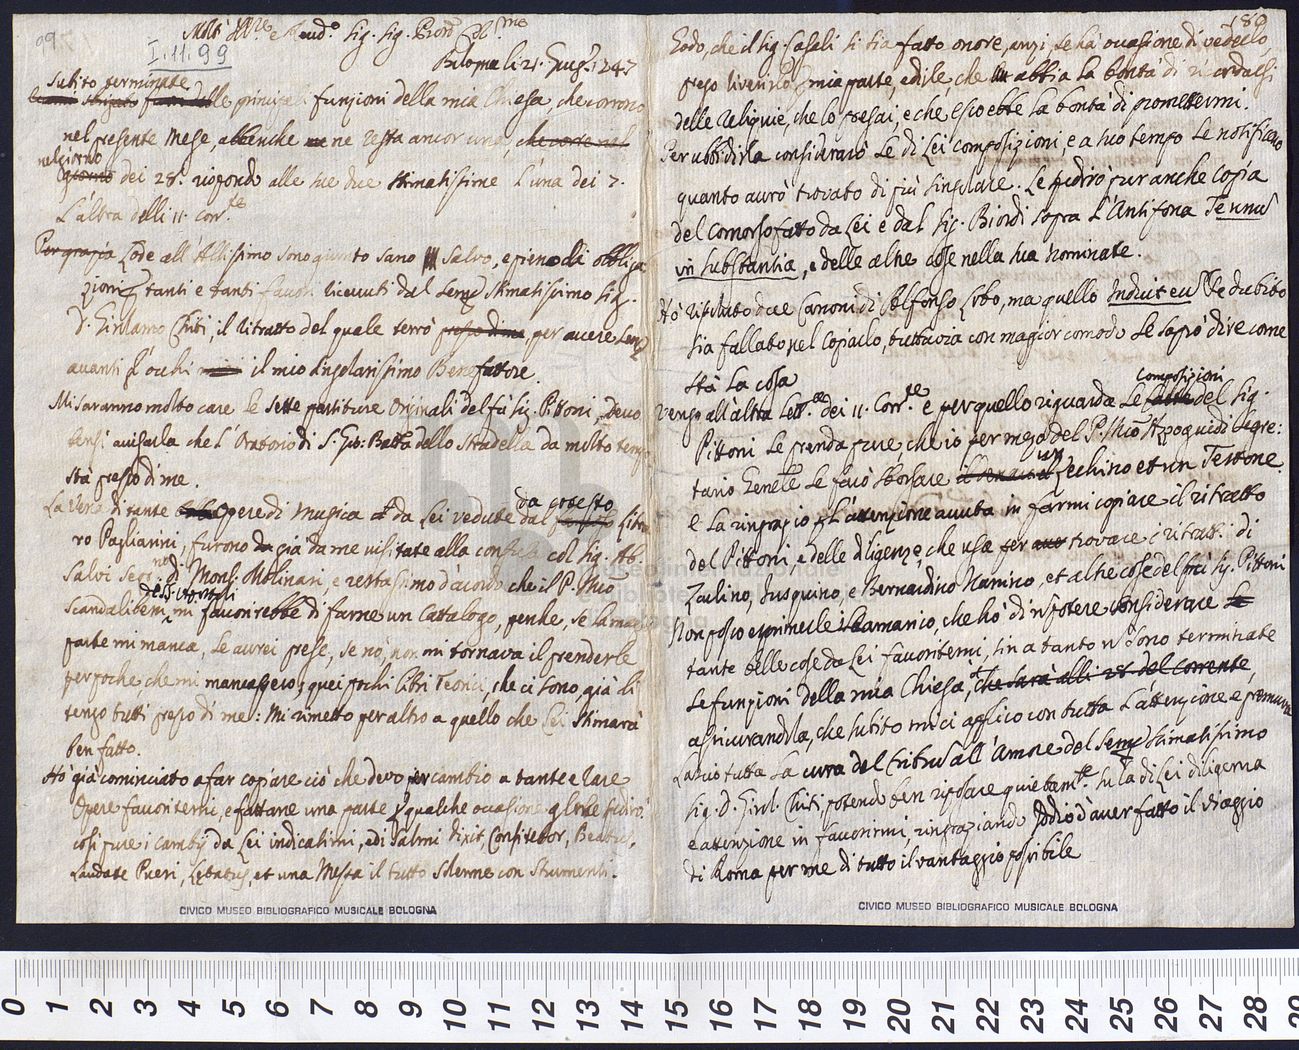 99
I.11.99
Molto Ill.re e Rend.o Sig. Sig. Pron Col.mo
Bologna li 21. Giug.o 1747
Subito terminate
le principali funzioni della mia Chiesa, che corrono
nel presente Mese, abbenche ne resta ancor una, che corre nel
nel giorno
giorno dei 28. rispondo alle sue due stimatissime l'una dei 7.
L'altra delli 11. Corr.te
Per grazia Lode all'Altissimo sono giunto sano salvo, e pieno di obbliga
zioni tanti e tanti favori ricevuti dal sempre stimatissimo Sig.
D. Girolamo Chiti, il ritratto del quale terrò presso di me, per avere sempre
avanti gl'occhi il mio singolarissimo Benefattore.
Mi saranno molto care le sette partiture Originali del fù Sig. Pittoni, devo
avisarla che l'Oratorio di S. Gio: Batta dello Stradella da molto tempo
stà presso di me.
La Vera di tante Opere di Musica da Lei vedute dal da questo Libra
ro Pagliarini, furono già da me visitate alla col Sig. Ab.
Salvi Segr. di Mons. Molinari, e restassimo d'acordo che il P. Mro
Scandalibeni mi favorirebbe di farne un Catalogo, perche, se la mag
parte mi manca, le avrei prese, se nò, non mi tornava il prenderle
per poche che mi mancassero; quei pochi libri Teorici, che ci sono, già li
tengo tutti presso di me: Mi rimetto per altro a quello che Lei stimarà
ben fatto.
Hò già cominciato a far copiare ciò che devo per cambio a tante e rare
Opere favoritemi, e fattane una parte p qualche occasione glele spedirò
così pure i cambij da Lei indicatimi, e di Salmi Dixit, Confitebor, Beatus,
Laudate Pueri, Lętatus, et una Messa il tutto solenne con Strumenti.
CIVICO MUSEO BIBLIOGRAFICO MUSICALE BOLOGNA
180
Godo, che il Sig. Casali si sia fatto onore, anzi, se hà occasione di vederlo,
prego riverirlo p mia parte, e dile, che abbia la bontà di ricordarsi
delle Reliquie, che lo pregai, e che esso ebbe la bontà di promettermi.
Per ubbidirla considerarò le di Lei composizioni, e a suo tempo le notificarò
quanto avrò trovato di più singolare. Le spedirò pur anche Copia
del Comorso fatto da Lei e dal Sig. Biordi sopra l'Antifona Tenuis
in substantia, e delle altre cose nella sua nominate.
Hò ristituto due Canoni di Alfonso Lobo, ma quello Induit eum Je dubito
sia fallato nel Copiarlo, tuttavia con magior comodo le saprò dire come
stà la cosa
Vengo all'altra Lett.ra dei 11. Corr.te e per quello riguarda le composizioni del Sig.
Pittoni le prenda pure, che io per mezo del P. Mro Azzoguidi Segre:
tario Genele le farò sborsare un Zechino et un Testone.
E la ringrazio p l'attenzione avuta in farmi copiare il ritratto
del Pittoni, e delle diligenze, che usa per trovare i ritratti di
Zarlino, Susquino, e Bernardino Nanino, et altre cose del fù Sig. Pittoni
Non posso esprimerle il ramarico, che hò di non potere considerare le
tante belle cose da Lei favoritemi, sin a tanto n sono terminate
le funzioni della mia Chiesa, che sarà alli 28 del corrente,
assicurandola, che subito mi ci applico con tutta l'attenzione e premura
Lascio tutta la cura del all'Amore del sempre stimatissimo
Sig. D. Girol. Chiti, potendo ben riposare quietam.te su la di Lei diligenza
e attenzione in favorirmi, ringraziando Iddio d'aver fatto il viaggio
di Roma per me di tutto il vantaggio possibile
CIVICO MUSEO BIBLIOGRAFICO MUSICALE BOLOGNA
0 1 2 3 4 5 6 7 8 9 10 11 12 13 14 15 16 17 18 19 20 21 22 23 24 25 26 27 28 29